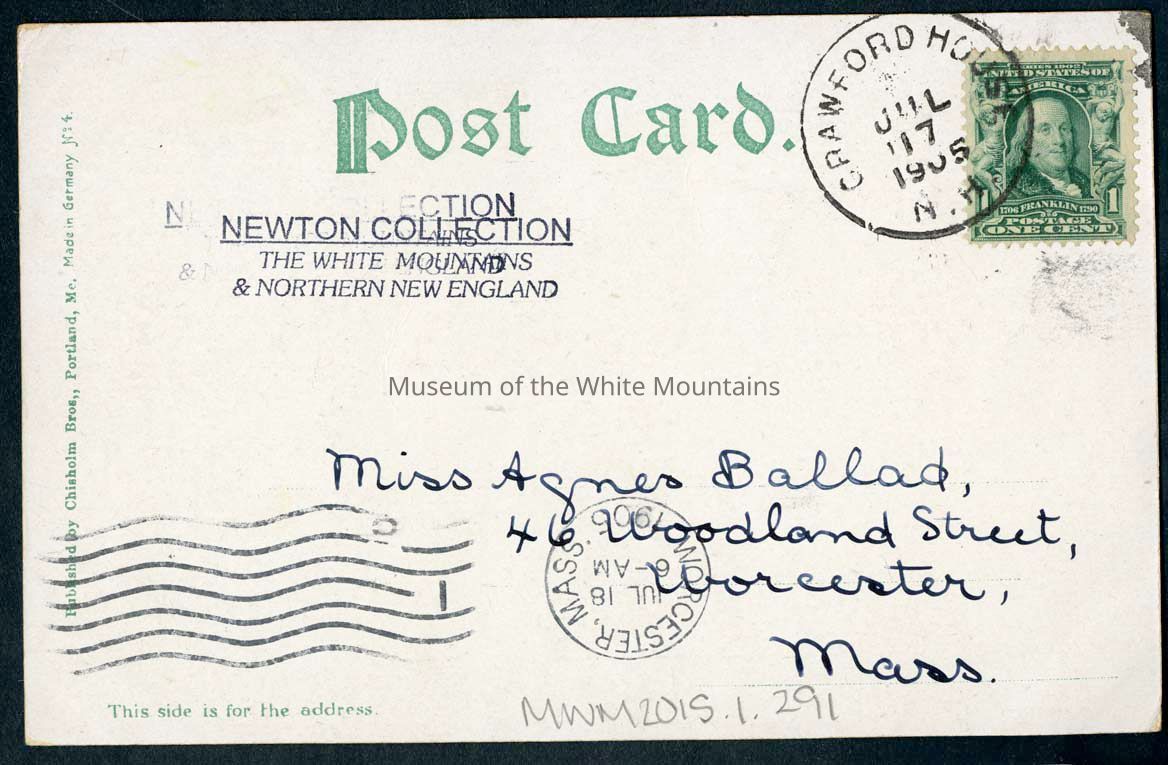 Post Card.
CRAWFORD HOUSE
JUL
17
1905
N.H.
SERIES 1902
UNITED STATES OF
AMERICA
1706 FRANKLIN 1790
POSTAGE
1 1
ONE CENT
NEWTON COLLECTION
THE WHITE MOUNTAINS
& NORTHERN NEW ENGLAND
N ECTION
AINS
& N NGLAND
Museum of the White Mountains
Published by Chisholm Bros., Portland, Me. Made in Germany Nº 4.
Miss Agnes Ballad,
46 Woodland Street,
Worcester,
Mass.
WORCESTER, MASS.
JUL 18
6-AM
1905
1
This side is for the address.
MWM2015.1.291